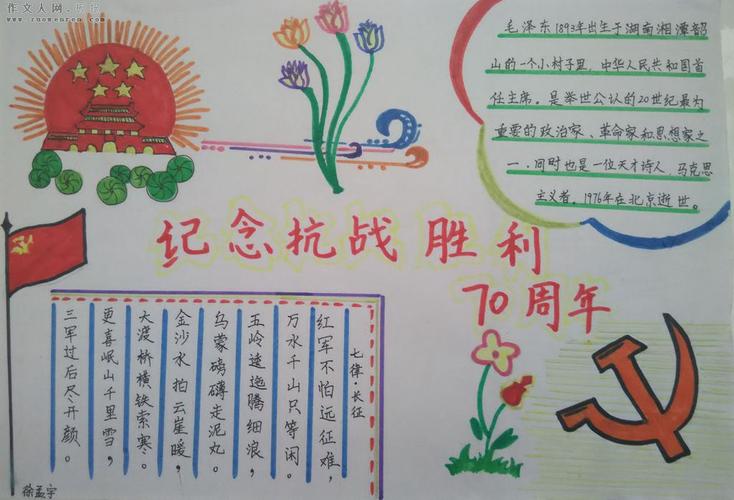 作文人网
www.zuowenren.com
毛泽东1893年出生于湖南湘潭韶
山的一个小村子里，中华人民共和国首
任主席。是举世公认的20世纪最为
重要的政治家、革命家和思想家之
一，同时也是一位天才诗人，马克思
主义者，1976年在北京逝世。
纪念抗战胜利
70周年
七律·长征
红军不怕远征难，
万水千山只等闲。
五岭逶迤腾细浪，
乌蒙磅礴走泥丸。
金沙水拍云崖暖，
大渡桥横铁索寒。
更喜岷山千里雪，
三军过后尽开颜。
徐孟宇